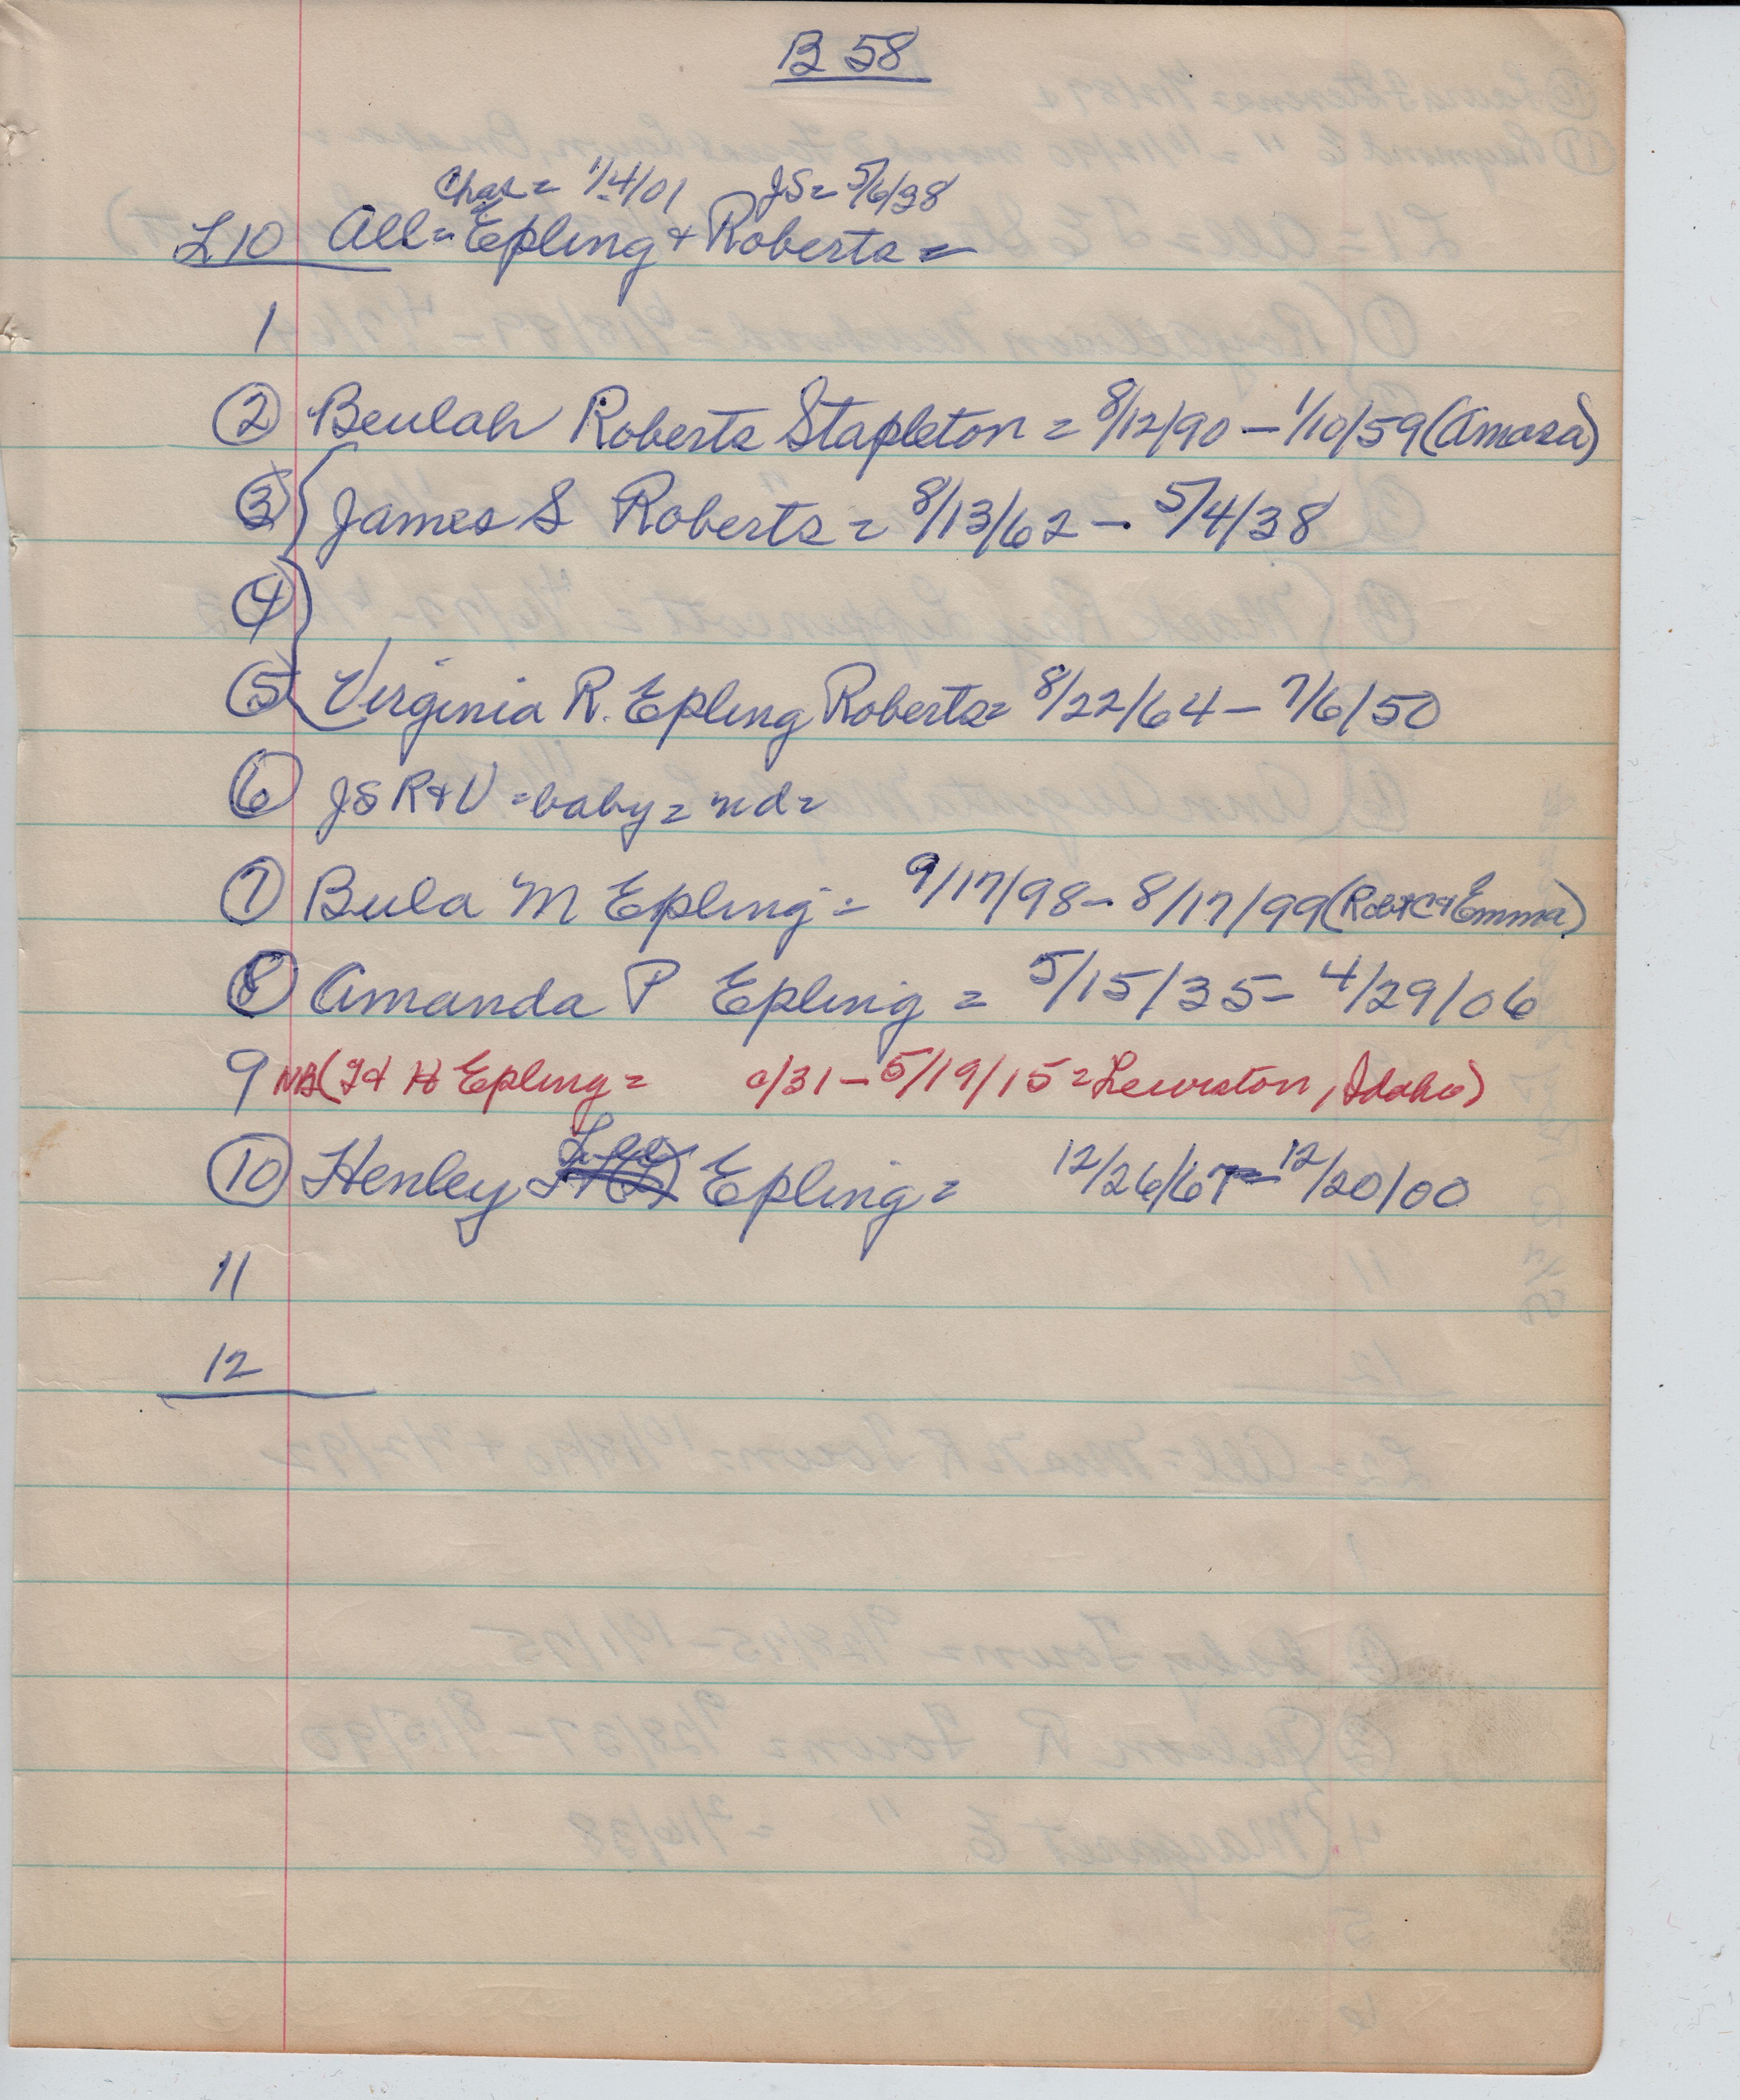 B 58
Chas = 1/4/01 JS = 5/6/38
L10 All = Epling + Roberts =
1
2 Beulah Roberts Stapleton = 8/12/90 - 1/10/59 (Amasa)
3 James S Roberts = 8/13/62 - 5/4/38
4
5 Virginia R. Epling Roberts = 8/22/64 - 7/6/50
6 JS R + V = baby = nd =
7 Bula M Epling = 9/17/98 - 8/17/99 (Robt C + Emma)
8 Amanda P Epling = 5/15/35 - 4/29/06
9 NB( H Epling = c/31 - 5/19/15 = Lewiston, Idaho)
10 Henley Lee Epling = 12/26/67 - 12/20/00
11
12